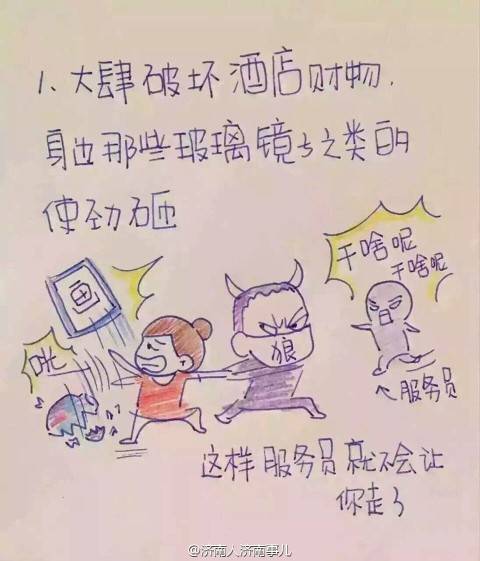 1、大肆破坏酒店财物.
身边那些玻璃镜子之类的
使劲砸
干啥呢
干啥呢
画
狼
咣
←服务员
这样服务员就不会让
你走了
@济南人济南事儿